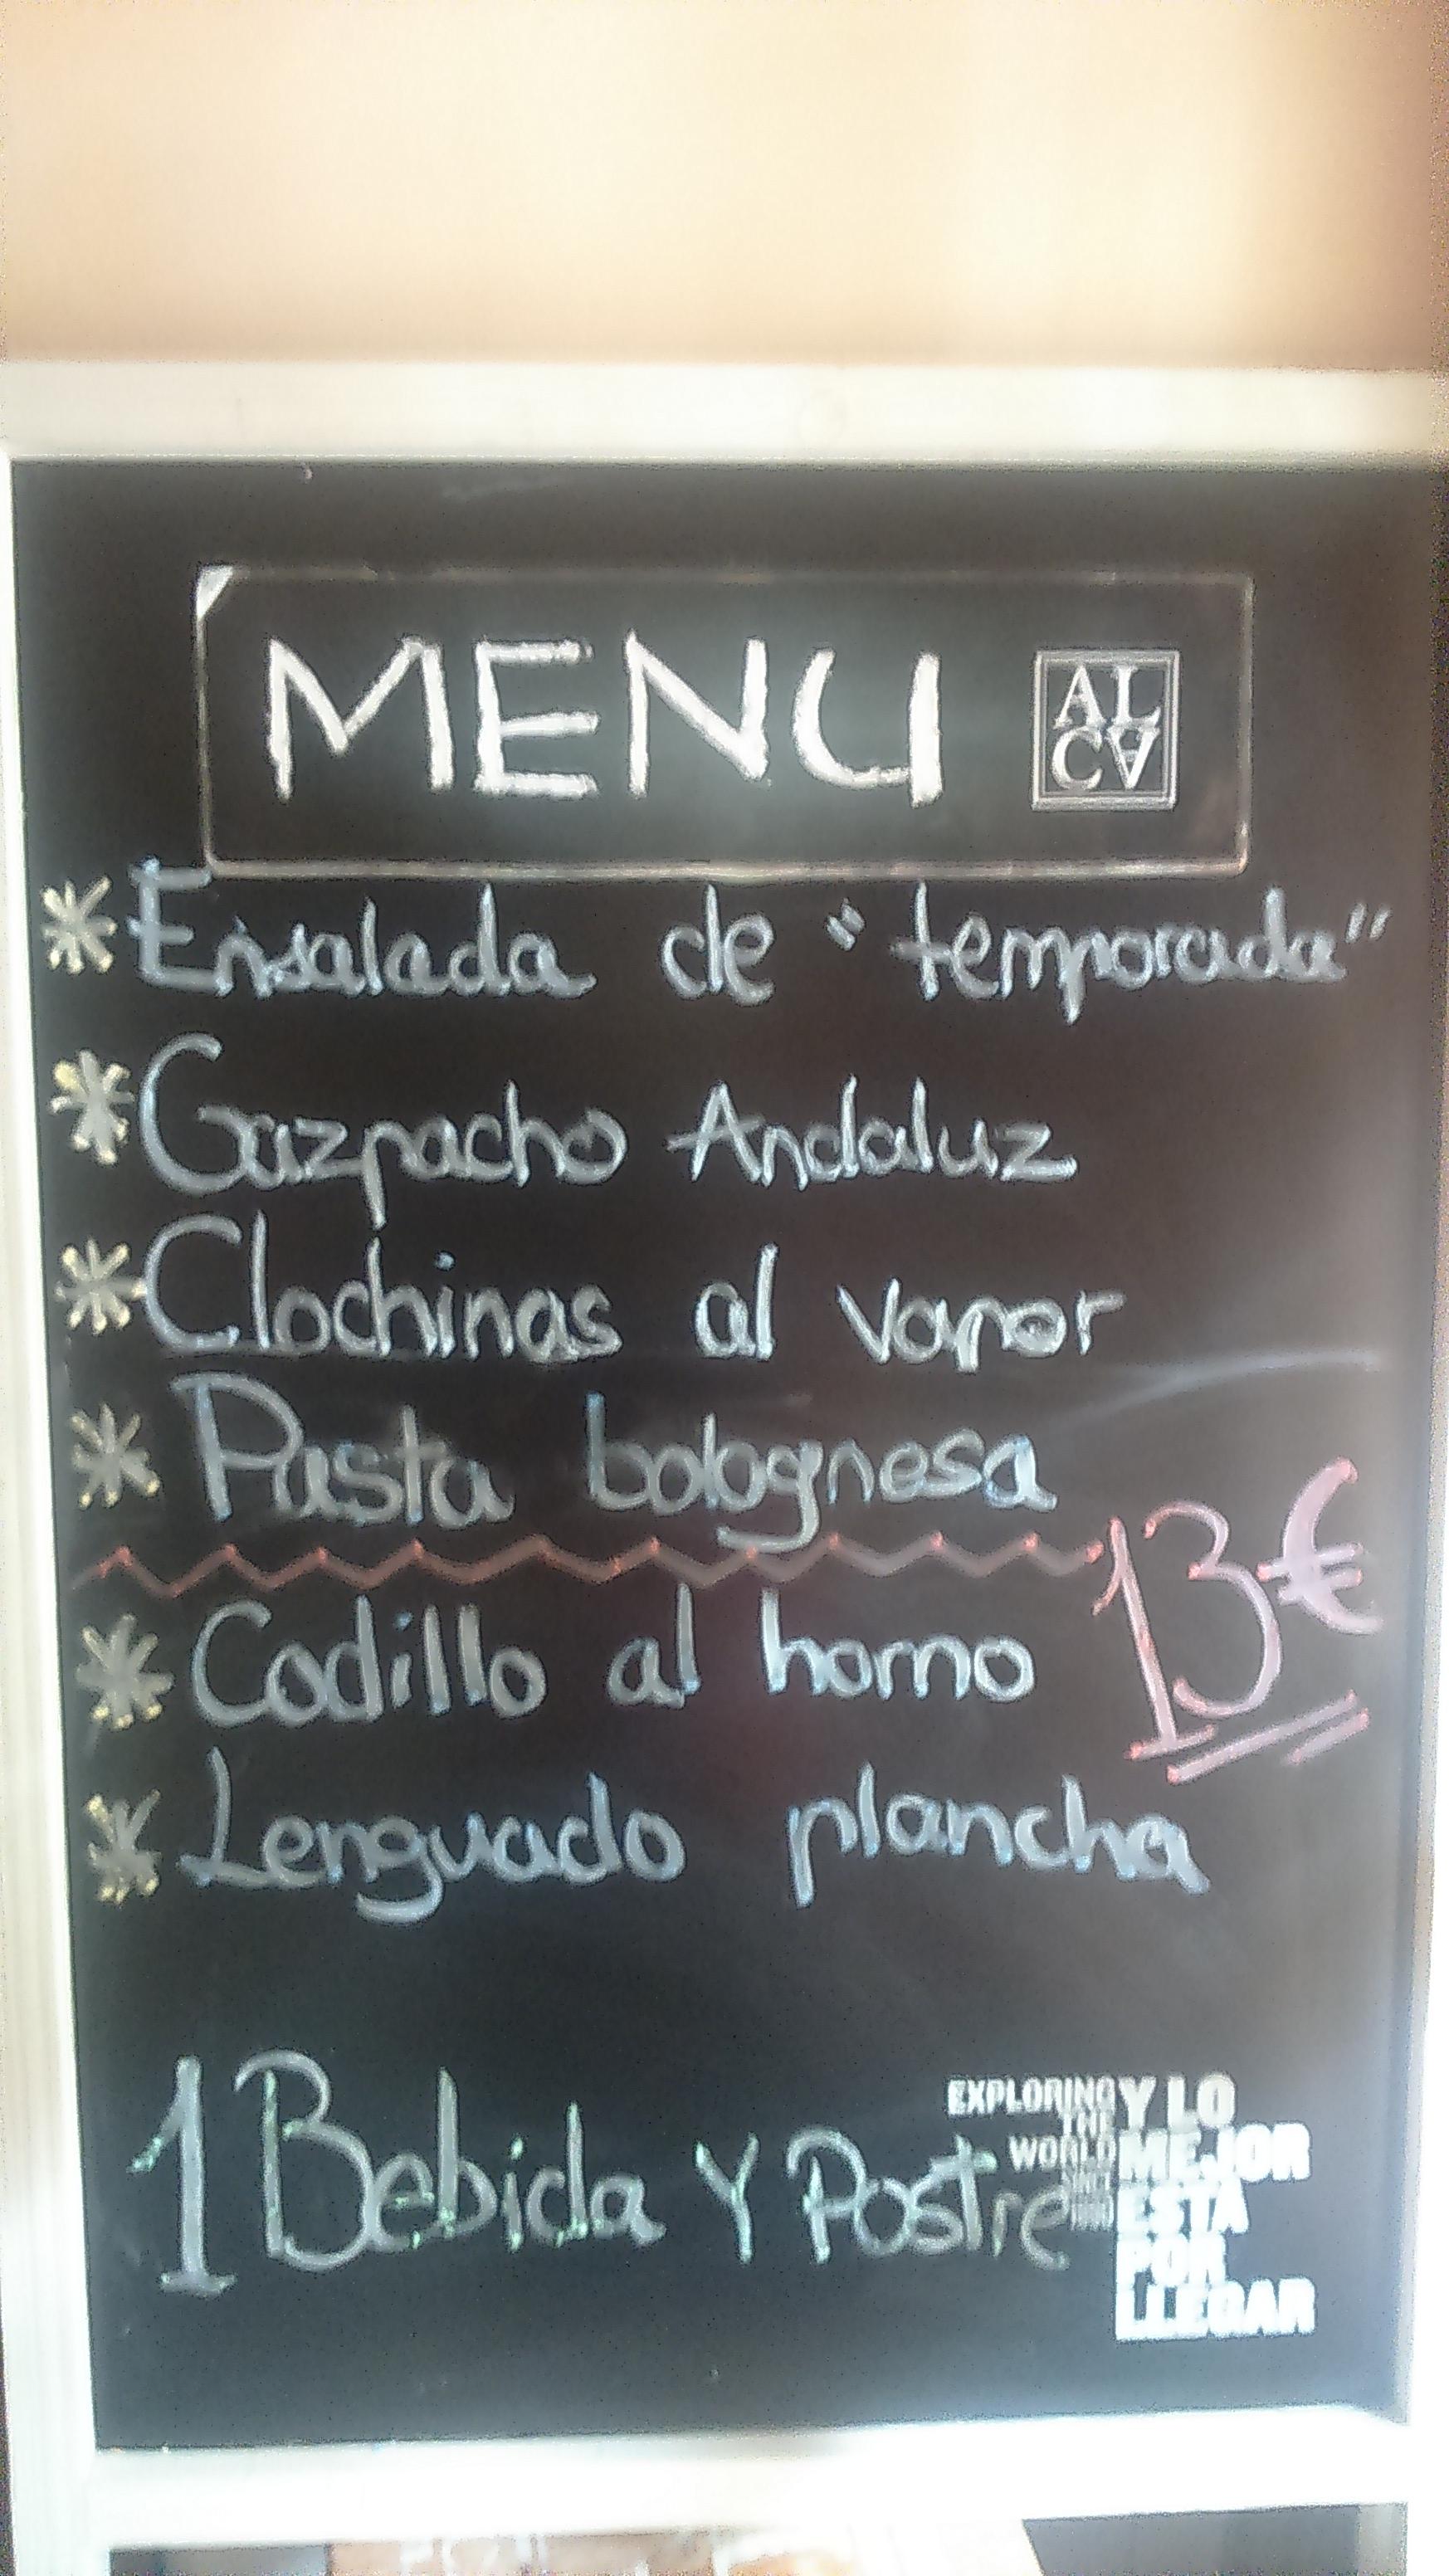 MENU
AL
CA
* Ensalada de "temporada"
* Gazpacho Andaluz
* Clochinas al vapor
* Pasta bolognesa
13€
* Codillo al horno
* Lenguado plancha
1 Bebida Y Postre
EXPLORING
THE
WORLD
Y LO
MEJOR
ESTÁ
POR
LLEGAR